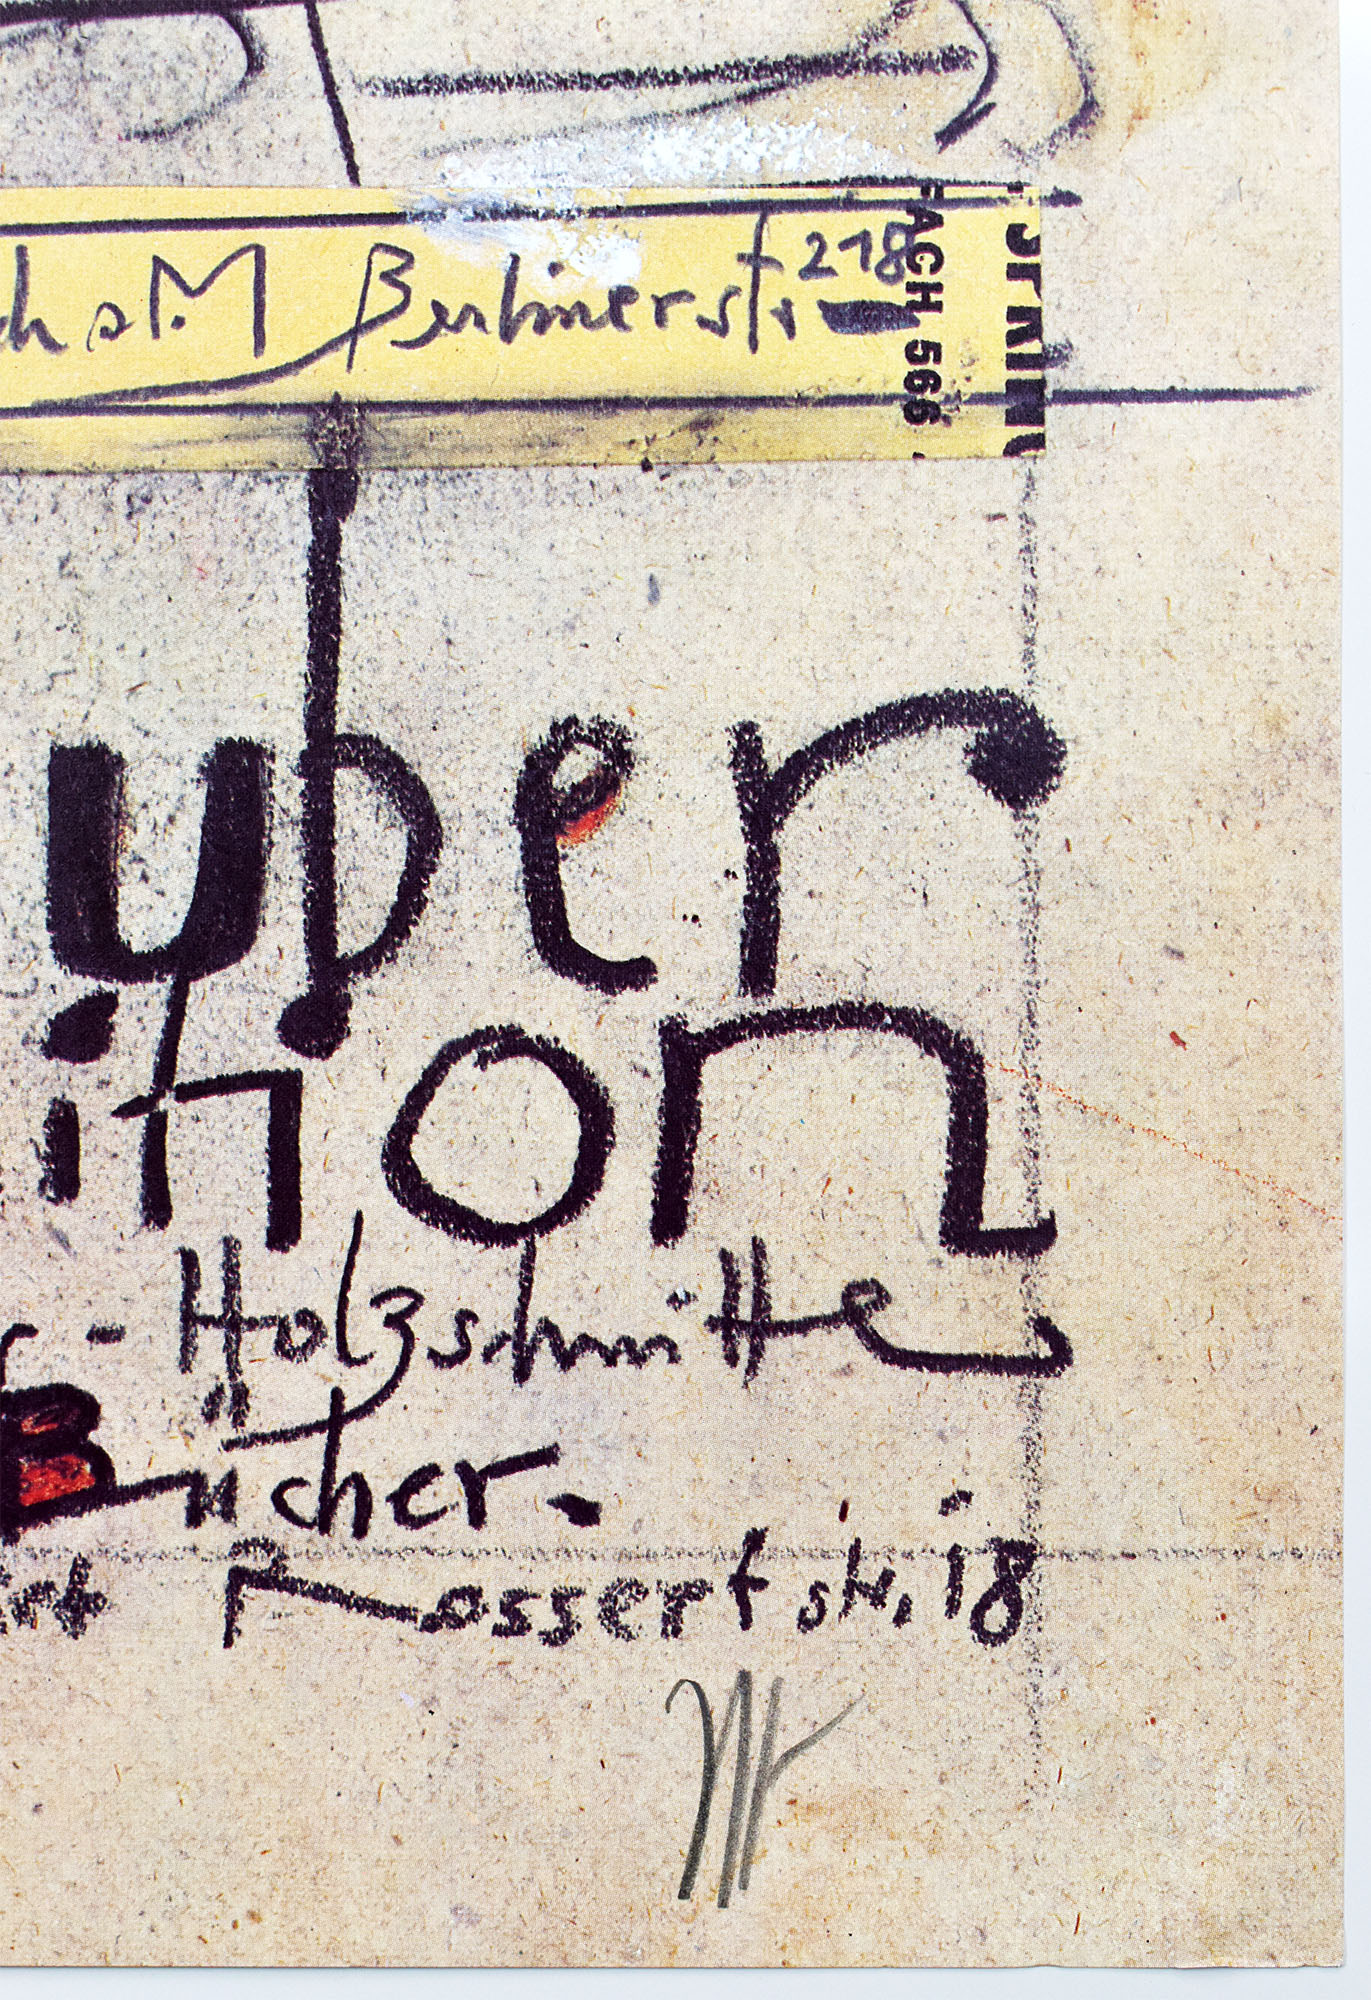 ch a.M Berlinerstr. 218
FACH 566
uber
ition
- Holzschnitte
Bücher.
Rossertstr. 18